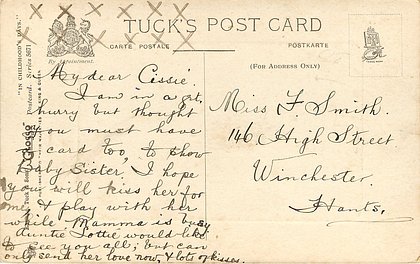 TUCK'S POST CARD
CARTE POSTALE
POSTKARTE
By Appointment.
(FOR ADDRESS ONLY)
"IN CHILDHOOD'S DAYS."
Postcard. Series 8671
"Glosso"
My dear Cissie.
I am in a grt.
hurry but thought
you must have
a card too, to show
baby Sister, I hope
you will kiss her for
me & play with her
while Mamma is busy
Auntie Tottie would like
to see you all; but can
only send her love now, & lots of kisses.
Miss F. Smith.
146 High Street
Winchester.
Hants.